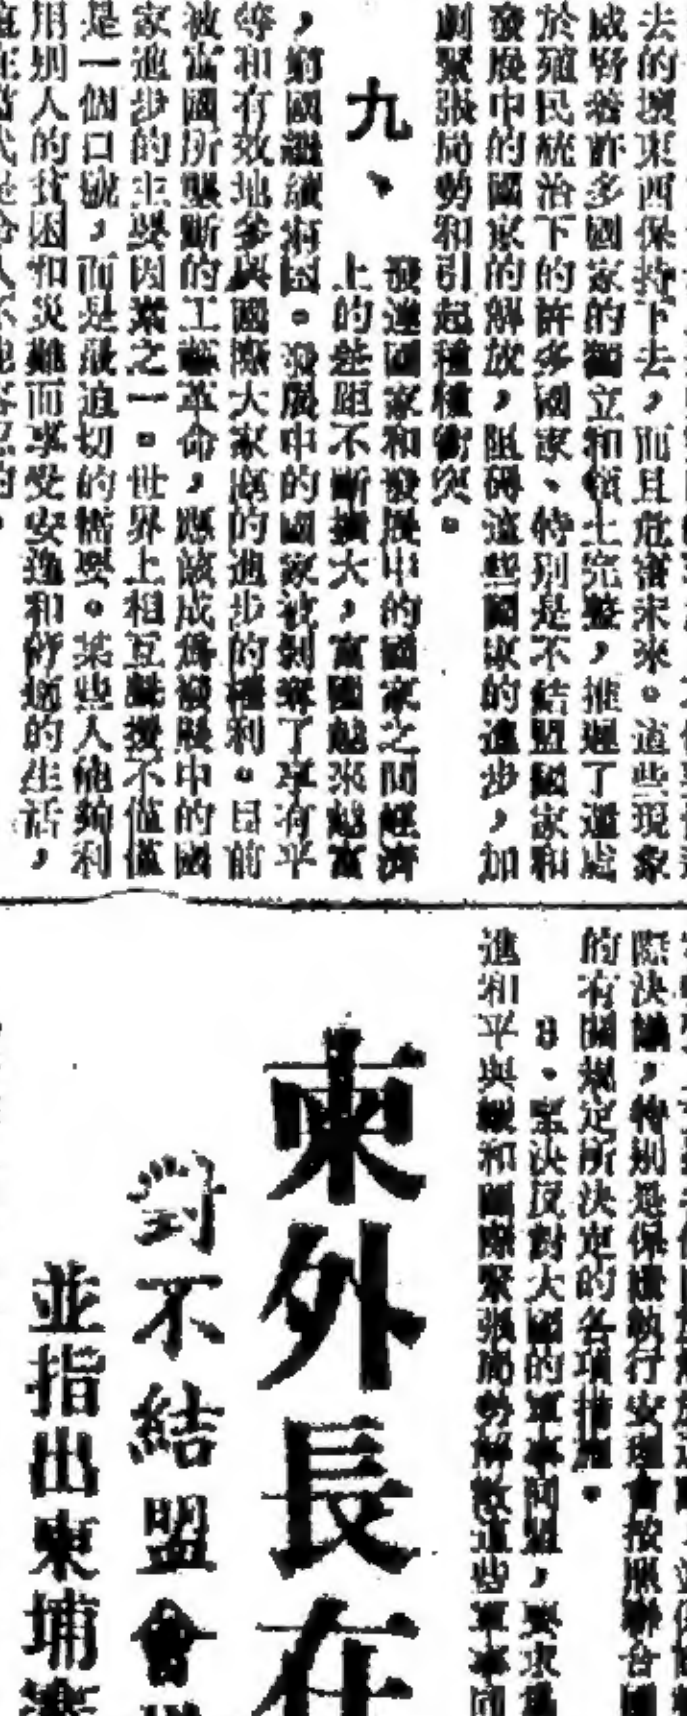 去的壞東西保持下去，而且危害未來。這些現象
威脅着許多國家的獨立和領土完整，推遲了還處
於殖民統治下的許多國家、特別是不結盟國家和
發展中的國家的解放，阻碍這些國家的進步，加
劇緊張局勢和引起種種衝突。
九、
發達國家和發展中的國家之間經濟
上的差距不斷擴大，富國越來越富
，窮國繼續窮困。發展中的國家被剝奪了享有平
等和有效地參與國際大家庭的進步的權利。目前
被富國所壟斷的工藝革命，應該成爲發展中的國
家進步的主要因素之一。世界上相互聲援不僅僅
是一個口號，而是最迫切的需要。某些人能夠利
用別人的貧困和災難而享受安逸和舒適的生活，
際決議，特別是保證執行安理會按照聯合國
的有關規定所決定的各項措施。
8、堅決反對大國的軍事同盟，要求
進和平與緩和國際緊張局勢解散這些軍事同
柬外長在
對不結盟會
並指出柬埔寨